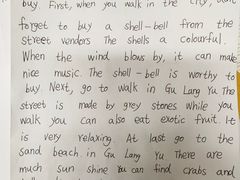 buy. First, when you walk in the city, don't
forget to buy a shell-bell from the
street venders The shells a colourful.
When the wind blows by, it can make
nice music. The shell-bell is worthy to
buy. Next, go to walk in Gu Lang Yu The
street is made by grey stones While you
walk you can also eat exotic fruit. It
is very relaxing. At last go to the
sand beach in Gu Lang Yu There are
much sun shine You can find crabs and